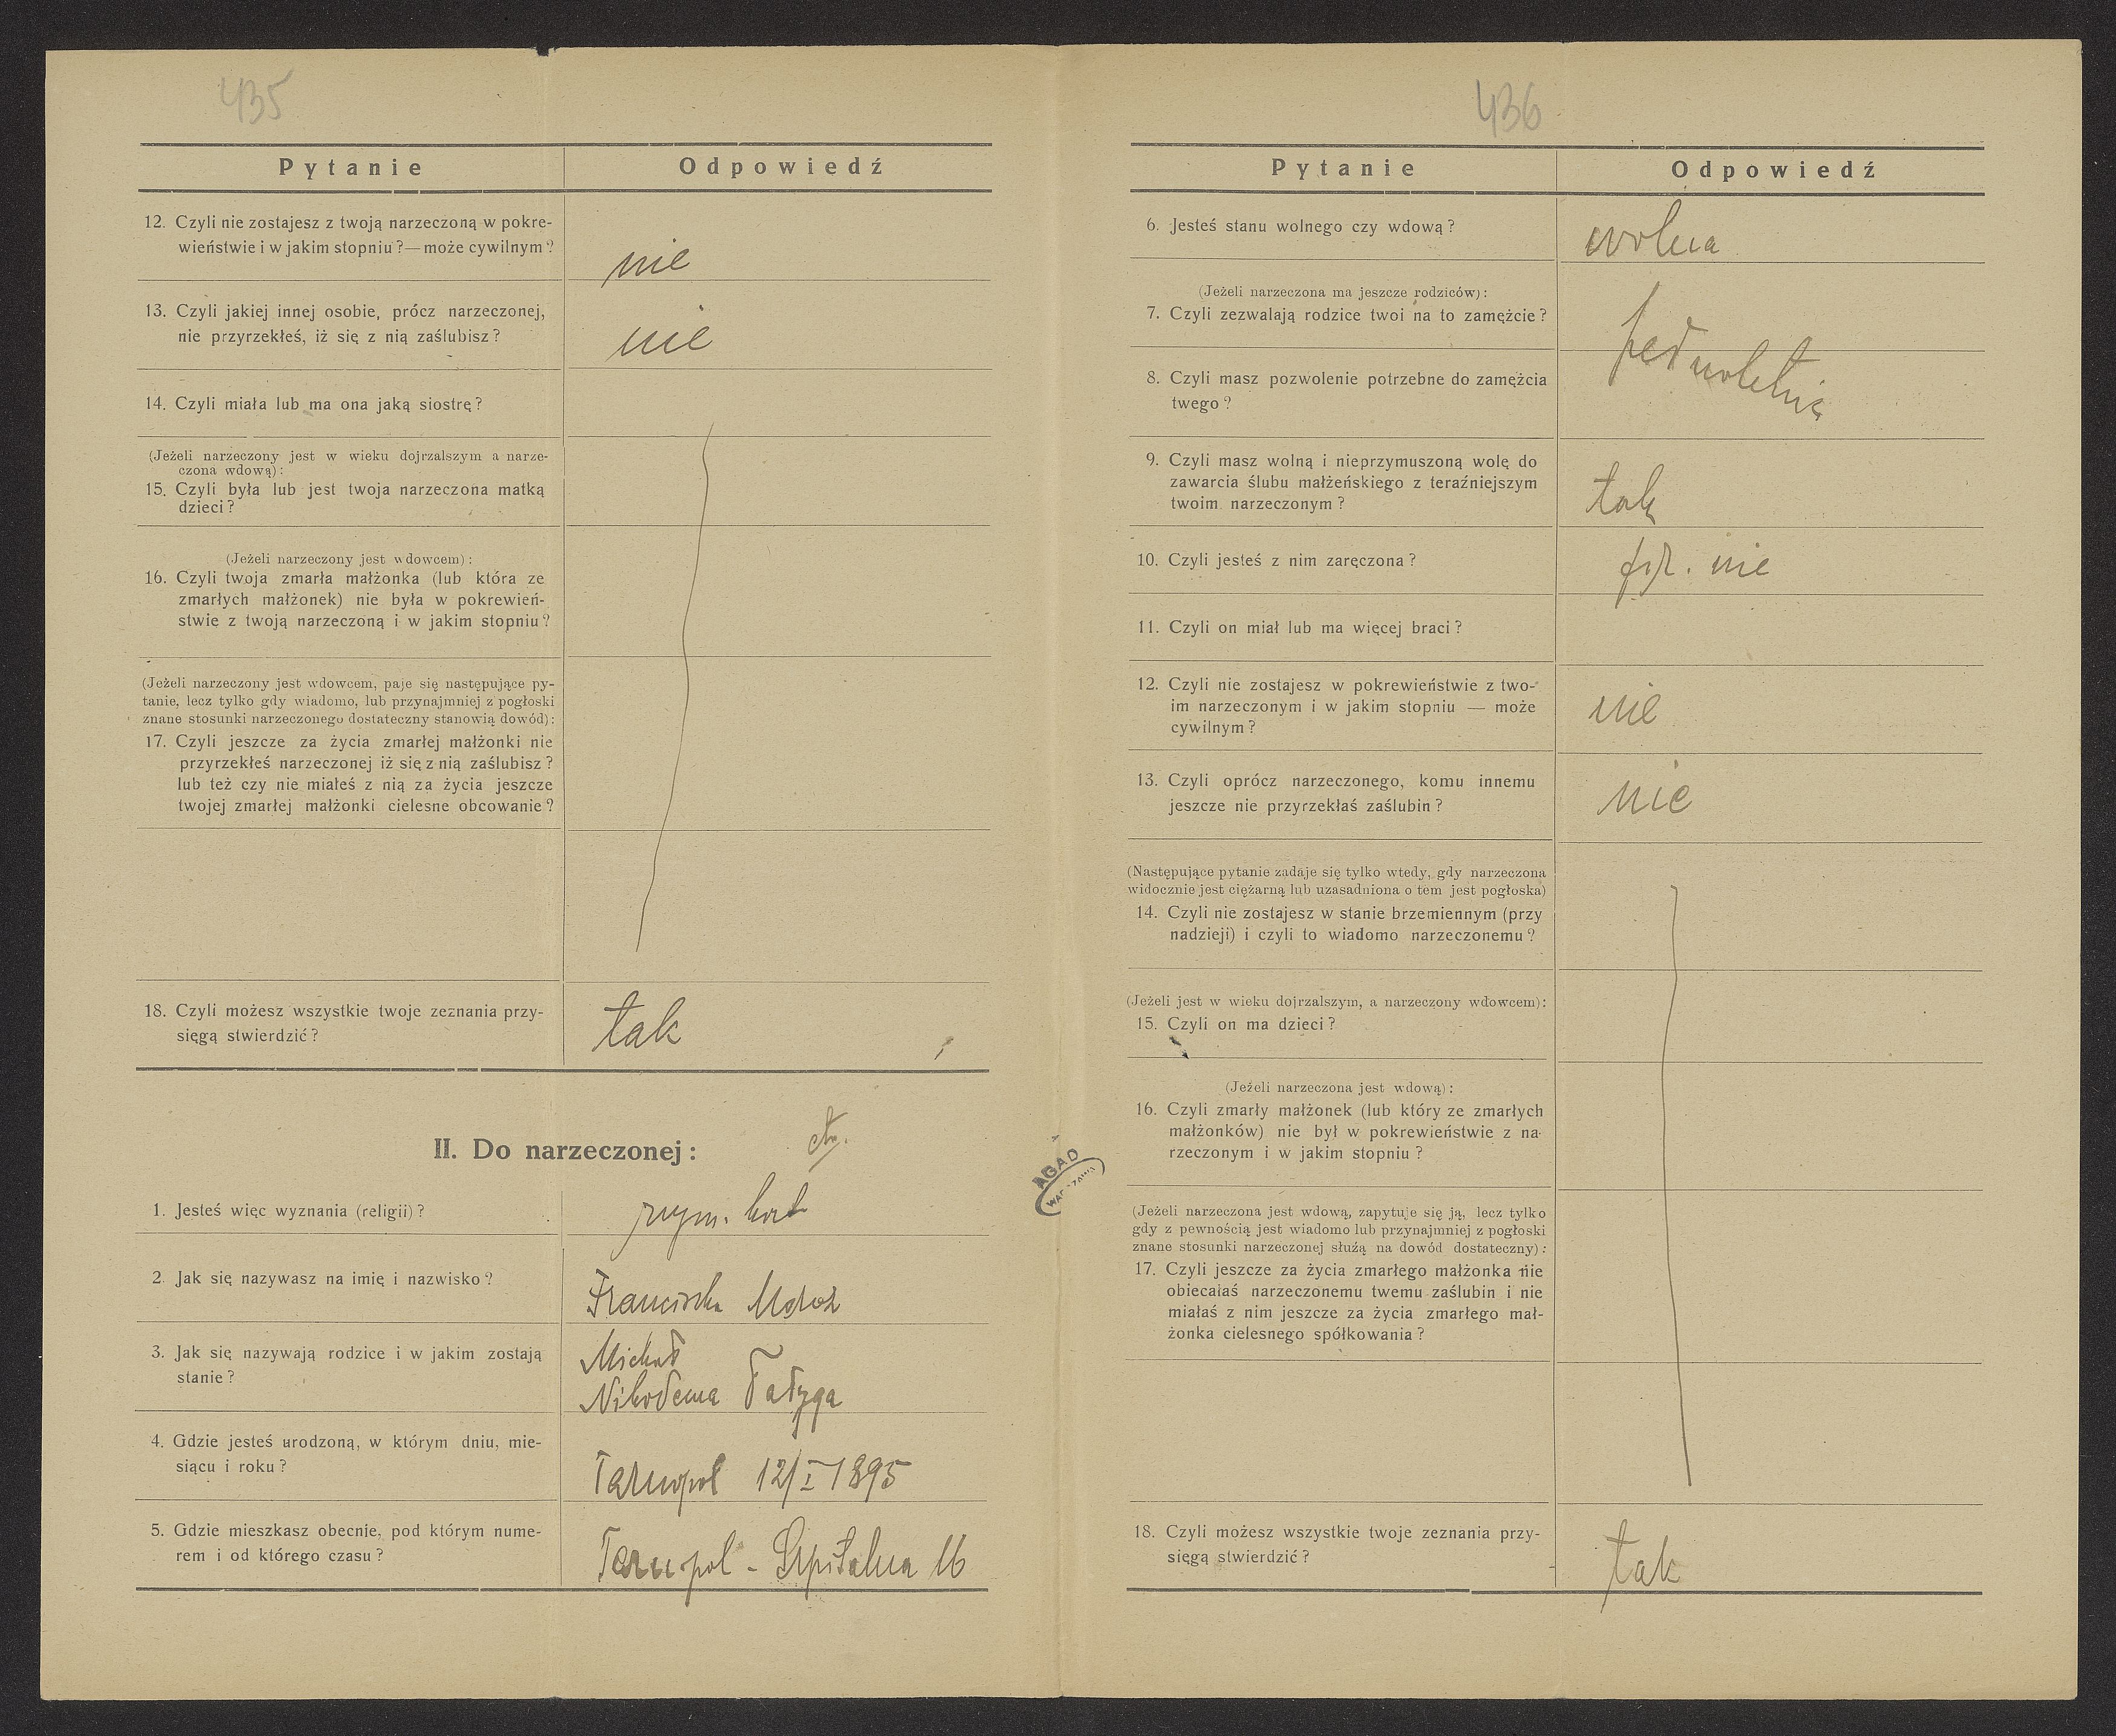 435
Pytanie Odpowiedź
12. Czyli nie zostajesz z twoją narzeczoną w pokre-
wieństwie i w jakim stopniu?—może cywilnym?
nie
13. Czyli jakiej innej osobie, prócz narzeczonej,
nie przyrzekłeś, iż się z nią zaślubisz?
nie
14. Czyli miała lub ma ona jaką siostrę?
(Jeżeli narzeczony jest w wieku dojrzalszym a narze-
czona wdową):
15. Czyli była lub jest twoja narzeczona matką
dzieci?
(Jeżeli narzeczony jest wdowcem):
16. Czyli twoja zmarła małżonka (lub która ze
zmarłych małżonek) nie była w pokrewień-
stwie z twoją narzeczoną i w jakim stopniu?
(Jeżeli narzeczony jest wdowcem, paje się następujące py-
tanie, lecz tylko gdy wiadomo, lub przynajmniej z pogłoski
znane stosunki narzeczonego dostateczny stanowią dowód):
17. Czyli jeszcze za życia zmarłej małżonki nie
przyrzekłeś narzeczonej iż się z nią zaślubisz?
lub też czy nie miałeś z nią za życia jeszcze
twojej zmarłej małżonki cielesne obcowanie?
18. Czyli możesz wszystkie twoje zeznania przy-
sięgą stwierdzić?
tak
II. Do narzeczonej:
1. Jesteś więc wyznania (religii)?
rzym. kat
2. Jak się nazywasz na imię i nazwisko?
Franciszka Mróz
3. Jak się nazywają rodzice i w jakim zostają
stanie?
Michał
Nikodema Fałyga
4. Gdzie jesteś urodzoną, w którym dniu, mie-
siącu i roku?
Tarnopol 12/I 1895
5. Gdzie mieszkasz obecnie, pod którym nume-
rem i od którego czasu?
Tarnopol - Szpitalna 16
AGAD
WARSZAWA
436
Pytanie Odpowiedź
6. Jesteś stanu wolnego czy wdową?
wolna
(Jeżeli narzeczona ma jeszcze rodziców):
7. Czyli zezwalają rodzice twoi na to zamężcie?
pełnoletnia
8. Czyli masz pozwolenie potrzebne do zamężcia
twego?
9. Czyli masz wolną i nieprzymuszoną wolę do
zawarcia ślubu małżeńskiego z teraźniejszym
twoim narzeczonym?
tak
10. Czyli jesteś z nim zaręczona?
nie
11. Czyli on miał lub ma więcej braci?
12. Czyli nie zostajesz w pokrewieństwie z two-
im narzeczonym i w jakim stopniu — może
cywilnym?
nie
13. Czyli oprócz narzeczonego, komu innemu
jeszcze nie przyrzekłaś zaślubin?
nie
(Następujące pytanie zadaje się tylko wtedy, gdy narzeczona
widocznie jest ciężarną lub uzasadniona o tem jest pogłoska)
14. Czyli nie zostajesz w stanie brzemiennym (przy
nadzieji) i czyli to wiadomo narzeczonemu?
(Jeżeli jest w wieku dojrzalszym, a narzeczony wdowcem):
15. Czyli on ma dzieci?
(Jeżeli narzeczona jest wdową):
16. Czyli zmarły małżonek (lub który ze zmarłych
małżonków) nie był w pokrewieństwie z na-
rzeczonym i w jakim stopniu?
(Jeżeli narzeczona jest wdową, zapytuje się ją, lecz tylko
gdy z pewnością jest wiadomo lub przynajmniej z pogłoski
znane stosunki narzeczonej służą na dowód dostateczny):
17. Czyli jeszcze za życia zmarłego małżonka nie
obiecałaś narzeczonemu twemu zaślubin i nie
miałaś z nim jeszcze za życia zmarłego mał-
żonka cielesnego spółkowania?
18. Czyli możesz wszystkie twoje zeznania przy-
sięgą stwierdzić?
tak